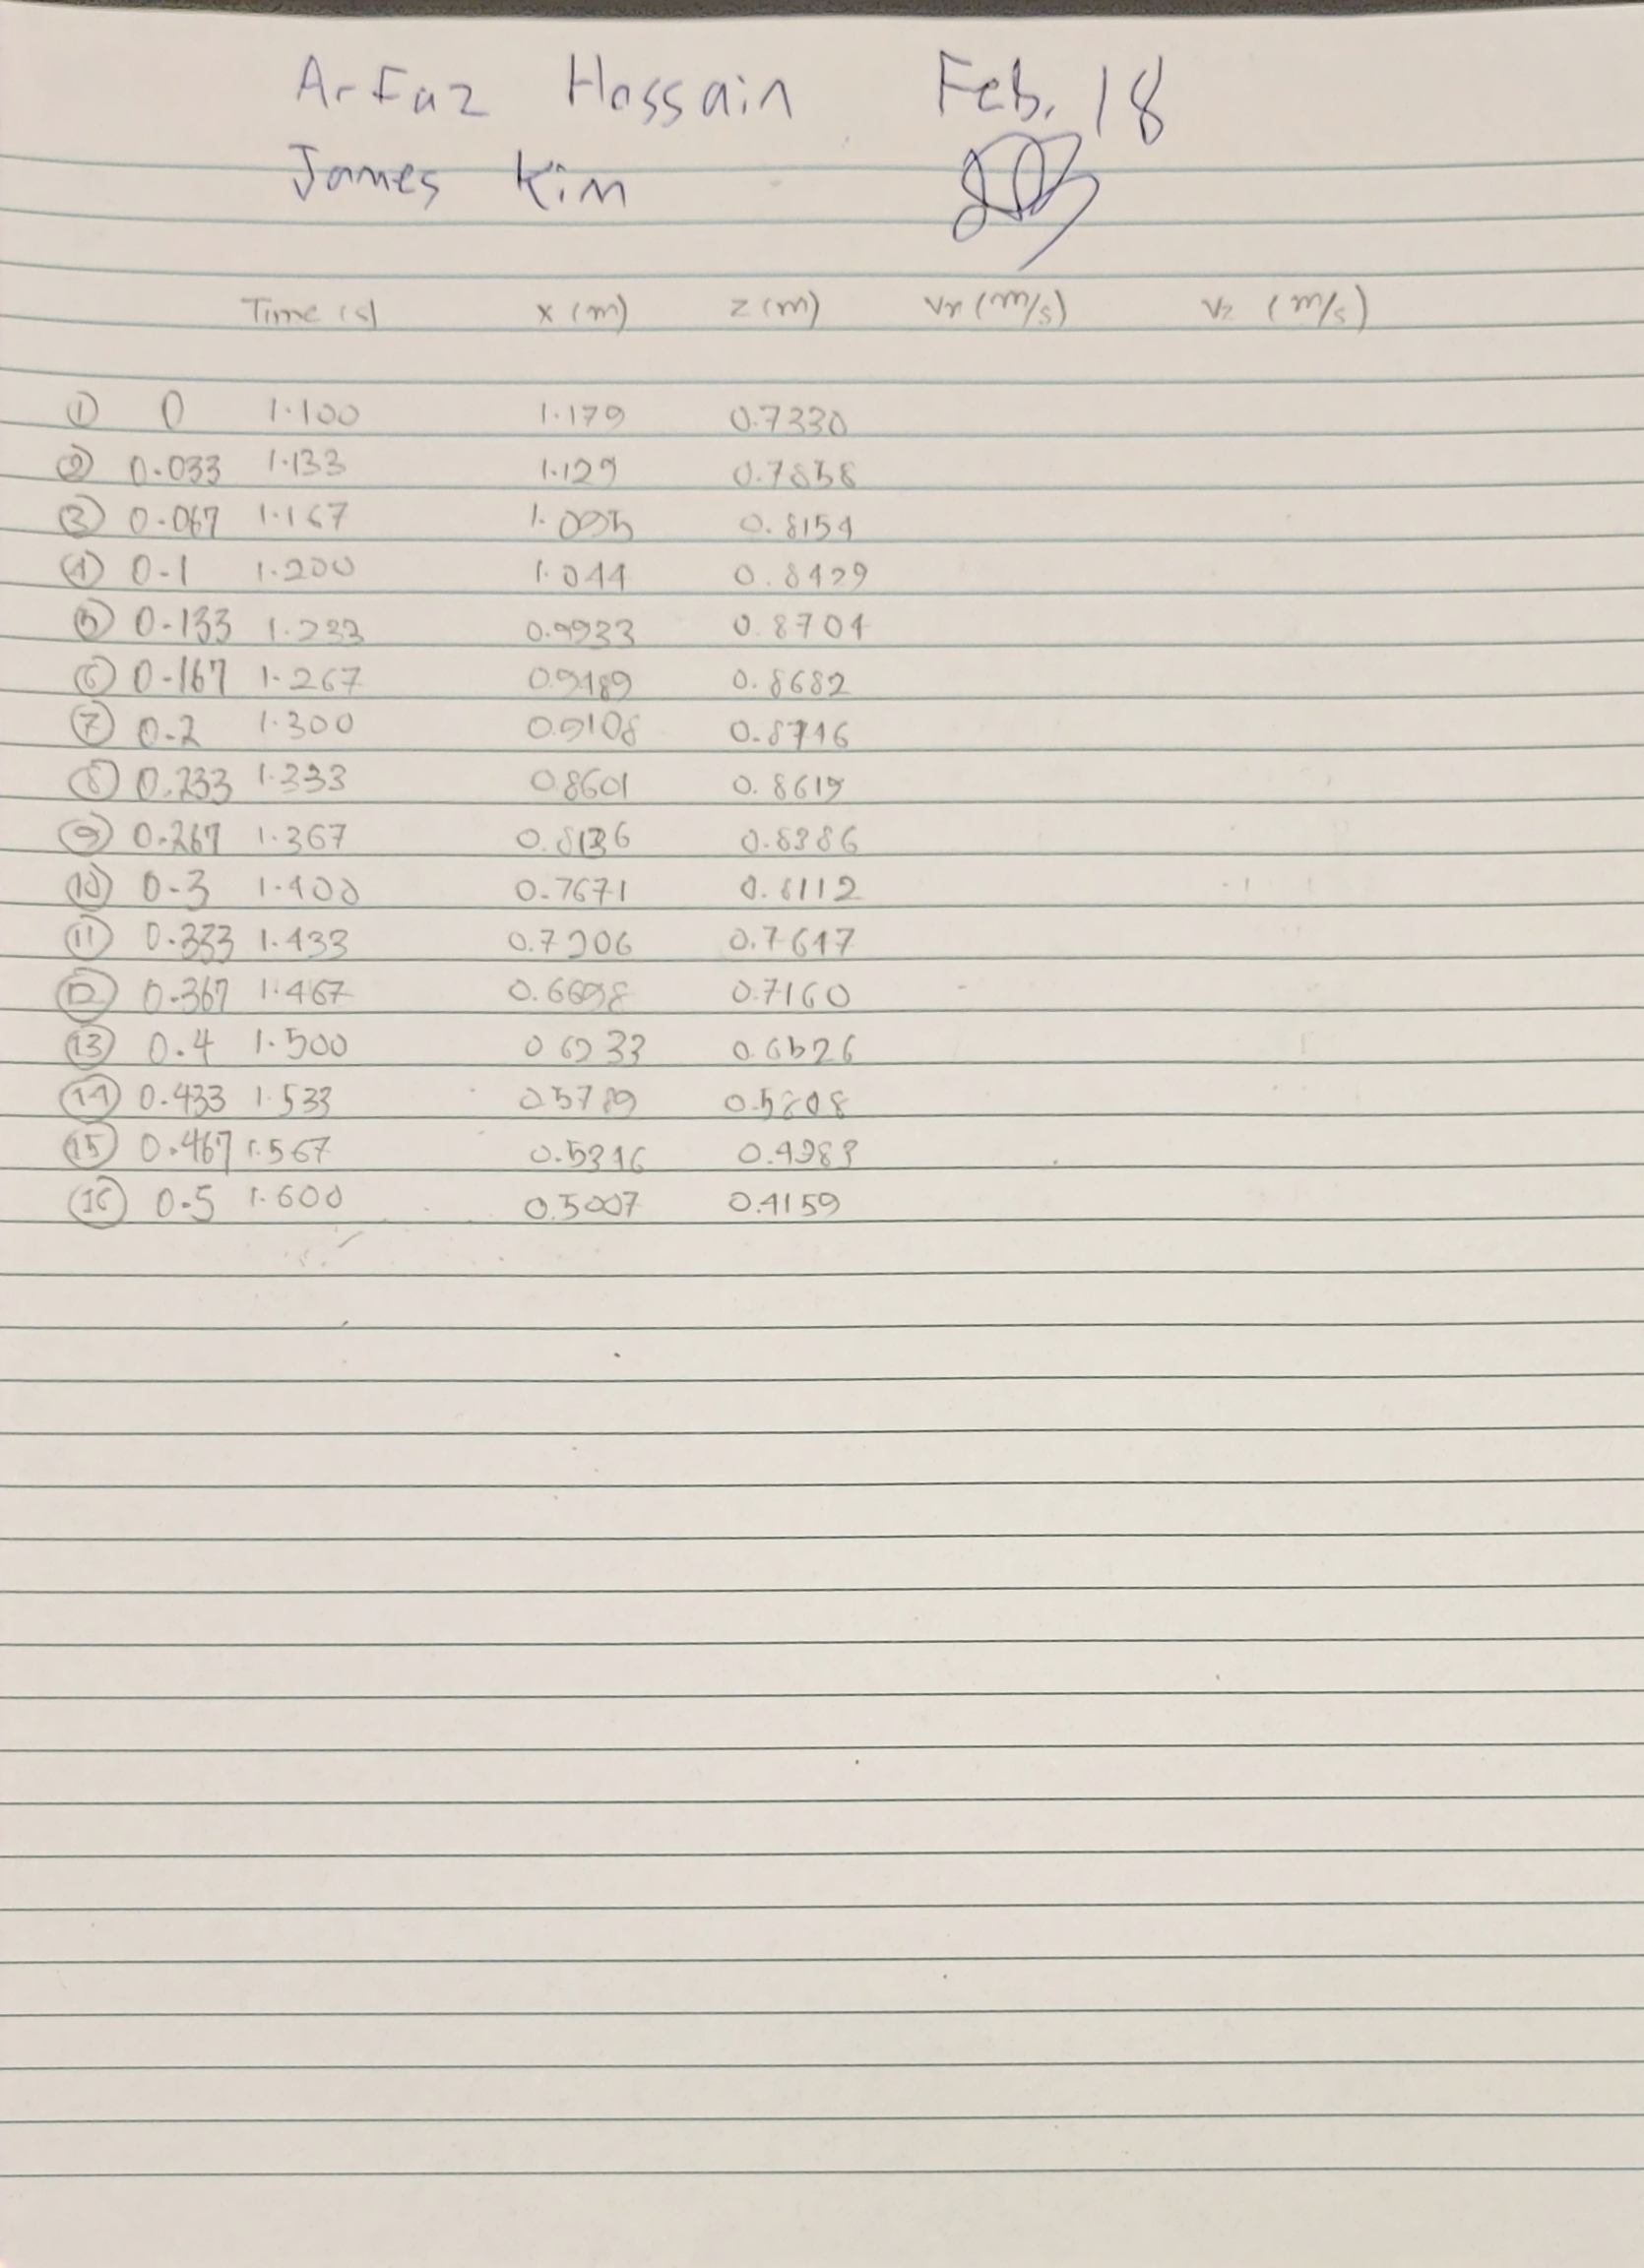 Arfaz Hossain Feb. 18
James Kim
Time (s) x (m) z (m) Vx (m/s) Vz (m/s)
① 0 1.100 1.179 0.7330
② 0.033 1.133 1.129 0.7858
③ 0.067 1.167 1.095 0.8154
④ 0.1 1.200 1.044 0.8429
⑤ 0.133 1.233 0.9933 0.8704
⑥ 0.167 1.267 0.9489 0.8682
⑦ 0.2 1.300 0.9108 0.8746
⑧ 0.233 1.333 0.8601 0.8619
⑨ 0.267 1.367 0.8136 0.8386
⑩ 0.3 1.400 0.7671 0.8112
⑪ 0.333 1.433 0.7206 0.7647
⑫ 0.367 1.467 0.6698 0.7160
⑬ 0.4 1.500 0.6233 0.6526
⑭ 0.433 1.533 0.5789 0.5808
⑮ 0.467 1.567 0.5346 0.4983
⑯ 0.5 1.600 0.5007 0.4159